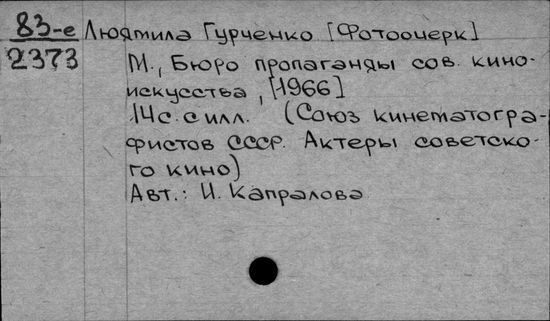 83-е Людмила Гурченко [Фотоочерк]
2373 М., Бюро пропаганды сов. кино-
искусства, [1966]
14с. с илл. (Союз кинематогра-
фистов СССР. Актеры советско-
го кино)
Авт.: И. Капралова